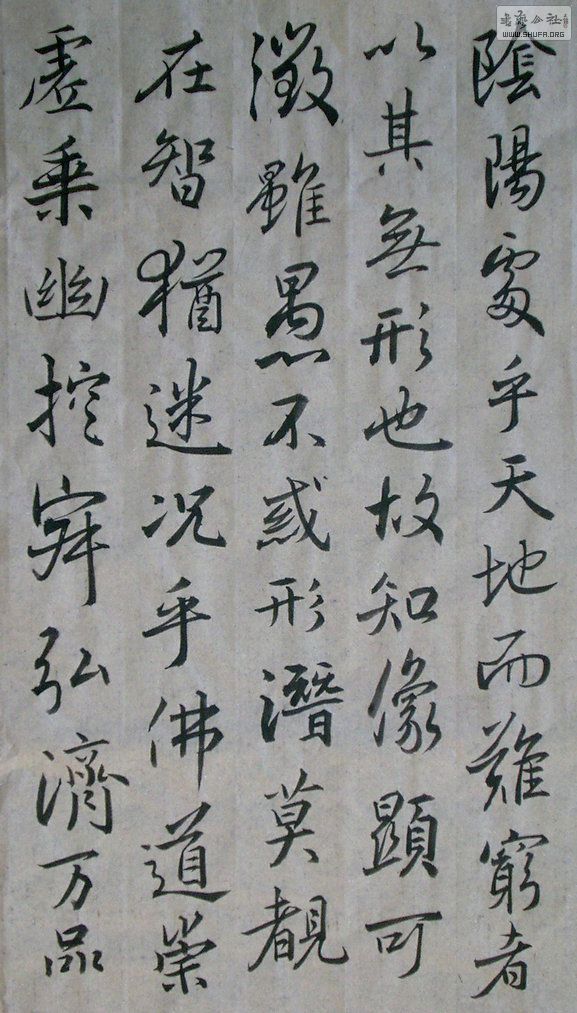 陰陽處乎天地而難窮者
以其無形也故知像顯可
徵雖愚不惑形潛莫覩
在智猶迷况乎佛道崇
虛乘幽控寂弘濟万品
書藝公社
WWW.SHUFA.ORG